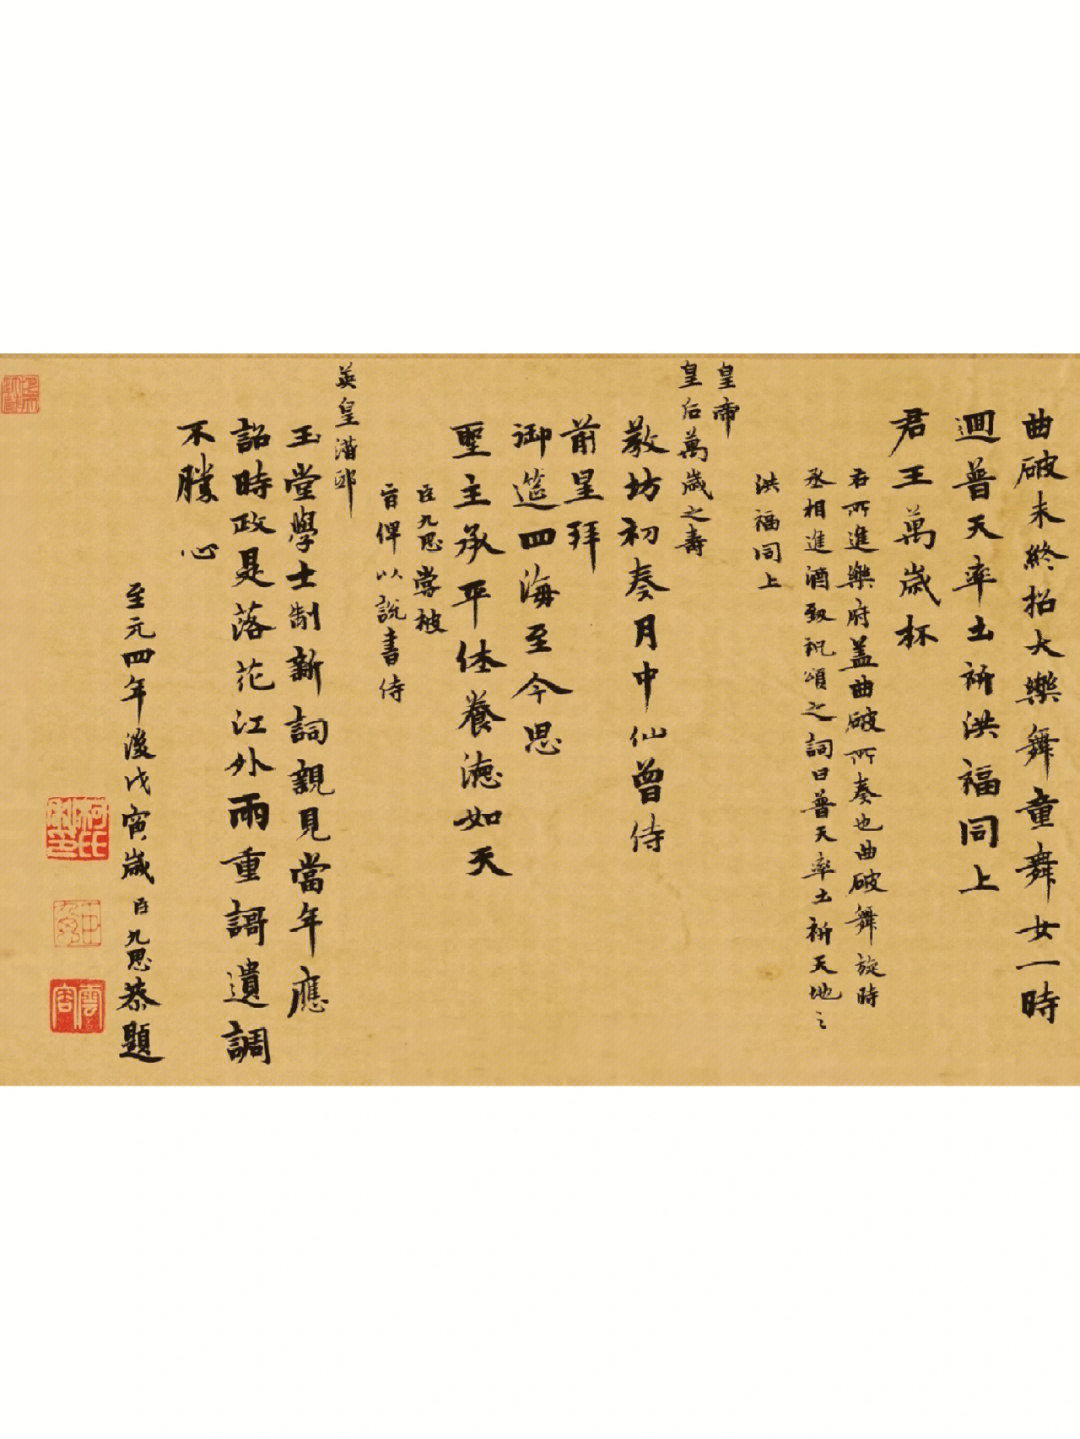 曲破未終招大樂舞童舞女一時
迴普天率土祈洪福同上
君王萬歲杯
右所進樂府蓋曲破所奏也曲破舞旋時
丞相進酒致祝頌之詞曰普天率土祈天地之
洪福同上
皇帝
皇后萬歲之壽
教坊初奏月中仙曾侍
前星拜
御筵四海至今思
聖主承平体養德如天
臣九思嘗被
旨俾以說書侍
英皇潛邸
玉堂學士制新詞親見當年應
詔時政是落花江外雨重謌遺調
不勝心
至元四年後戊寅歲臣九思恭題